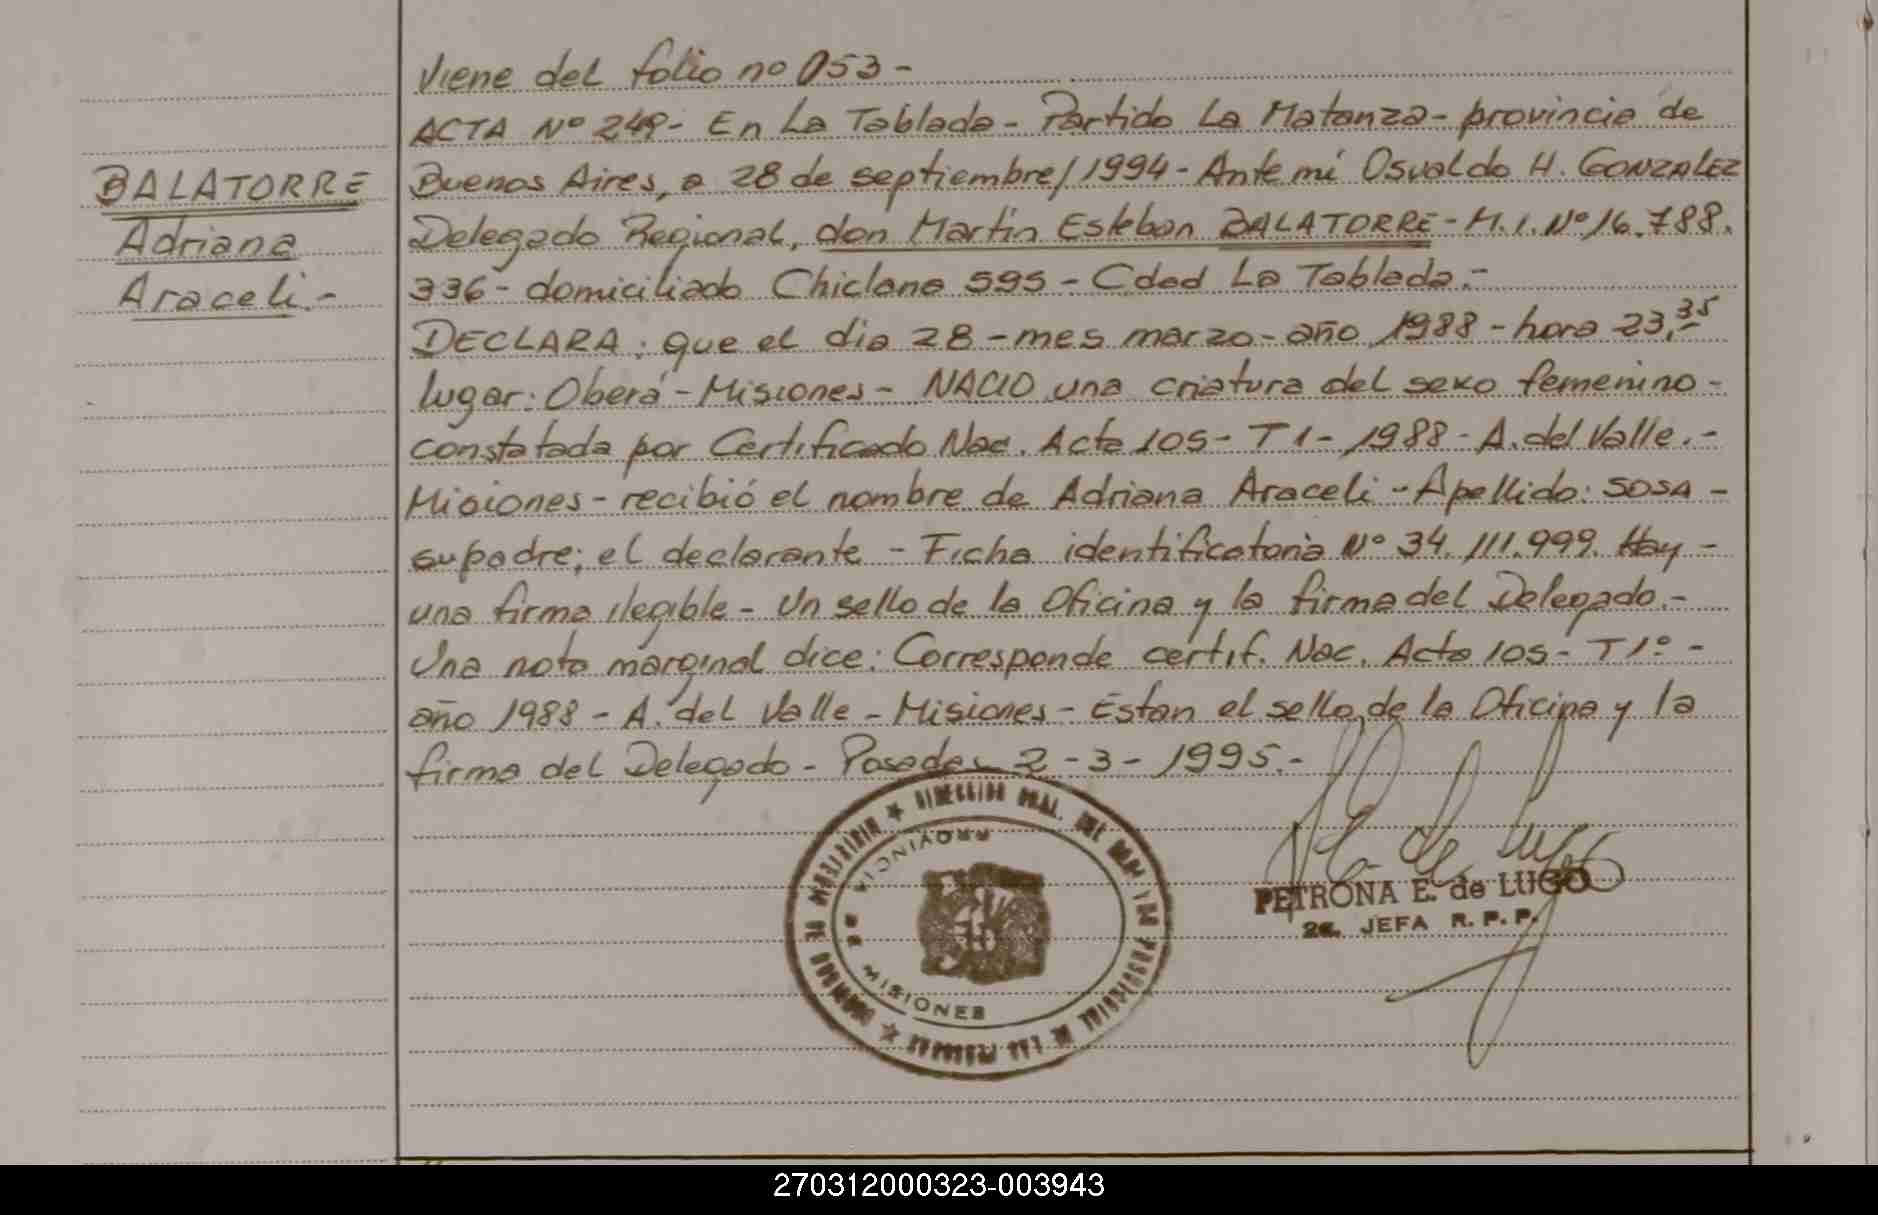 Viene del folio nº 053-
ACTA Nº 249- En La Tablada- Partido La Matanza- provincia de
BALATORRE
Adriana
Araceli.-
Buenos Aires, a 28 de septiembre/1994- Ante mí Osvaldo H. GONZALEZ
Delegado Regional, don Martín Esteban BALATORRE- M.I. Nº 16.788.
336- domiciliado Chiclana 595- Cdad La Tablada.-
DECLARA: que el dia 28-mes marzo-año 1988-hora 23,35
lugar: Oberá-Misiones- NACIO una criatura del sexo femenino-
constatada por Certificado Nac. Acta 105- T1- 1988- A. del Valle.-
Misiones- recibió el nombre de Adriana Araceli-Apellido: SOSA-
su padre; el declarante- Ficha identificatoria Nº 34.111.999. Hay-
una firma ilegible- Un sello de la Oficina y la firma del Delegado.-
Una nota marginal dice: Corresponde certif. Nac. Acta 105- T1º-
año 1988- A. del Valle- Misiones- Estan el sello de la Oficina y la
firma del Delegado- Posadas 2-3-1995.-
PROVINCIA DE MISIONES
PETRONA E. de LUGO
JEFA R. P. P.
270312000323-003943